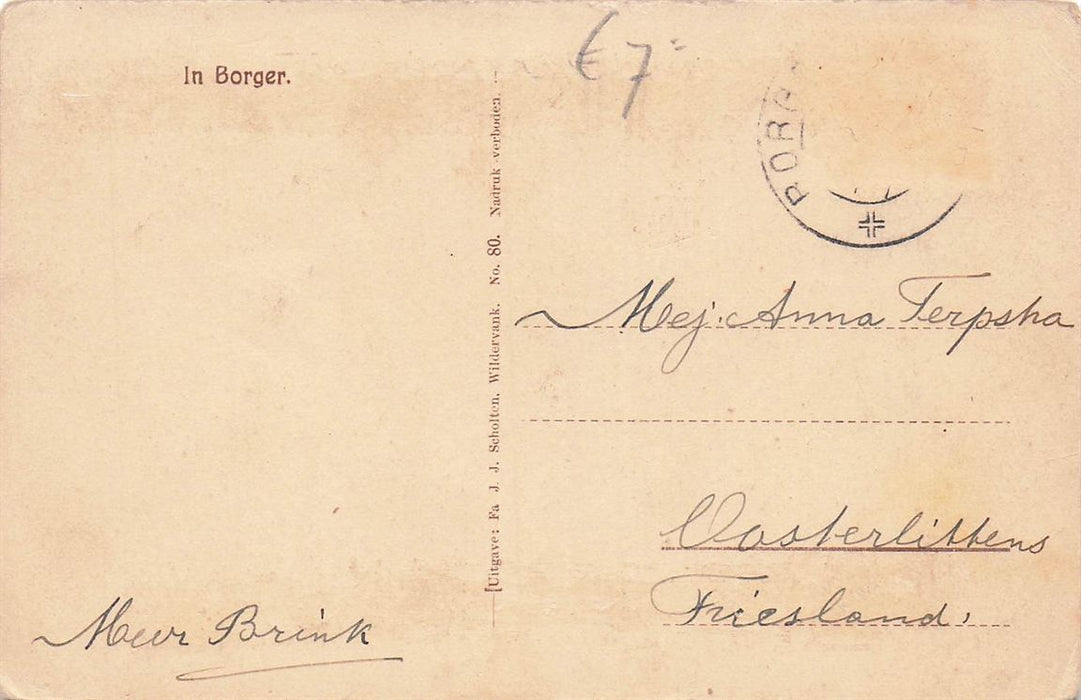 In Borger.
€ 7=
[Uitgave: Fa J. J. Scholten, Wildervank. No. 80. Nadruk verboden.
Mej: Anna Terpstra
Oosterlittens
Friesland,
Brink